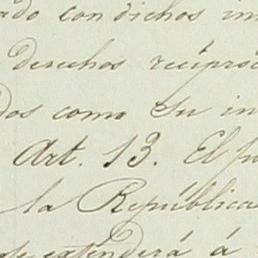 ado con dichos im
derechos recípro
dos como su in
Art. 13. El p
la República
se extenderá á